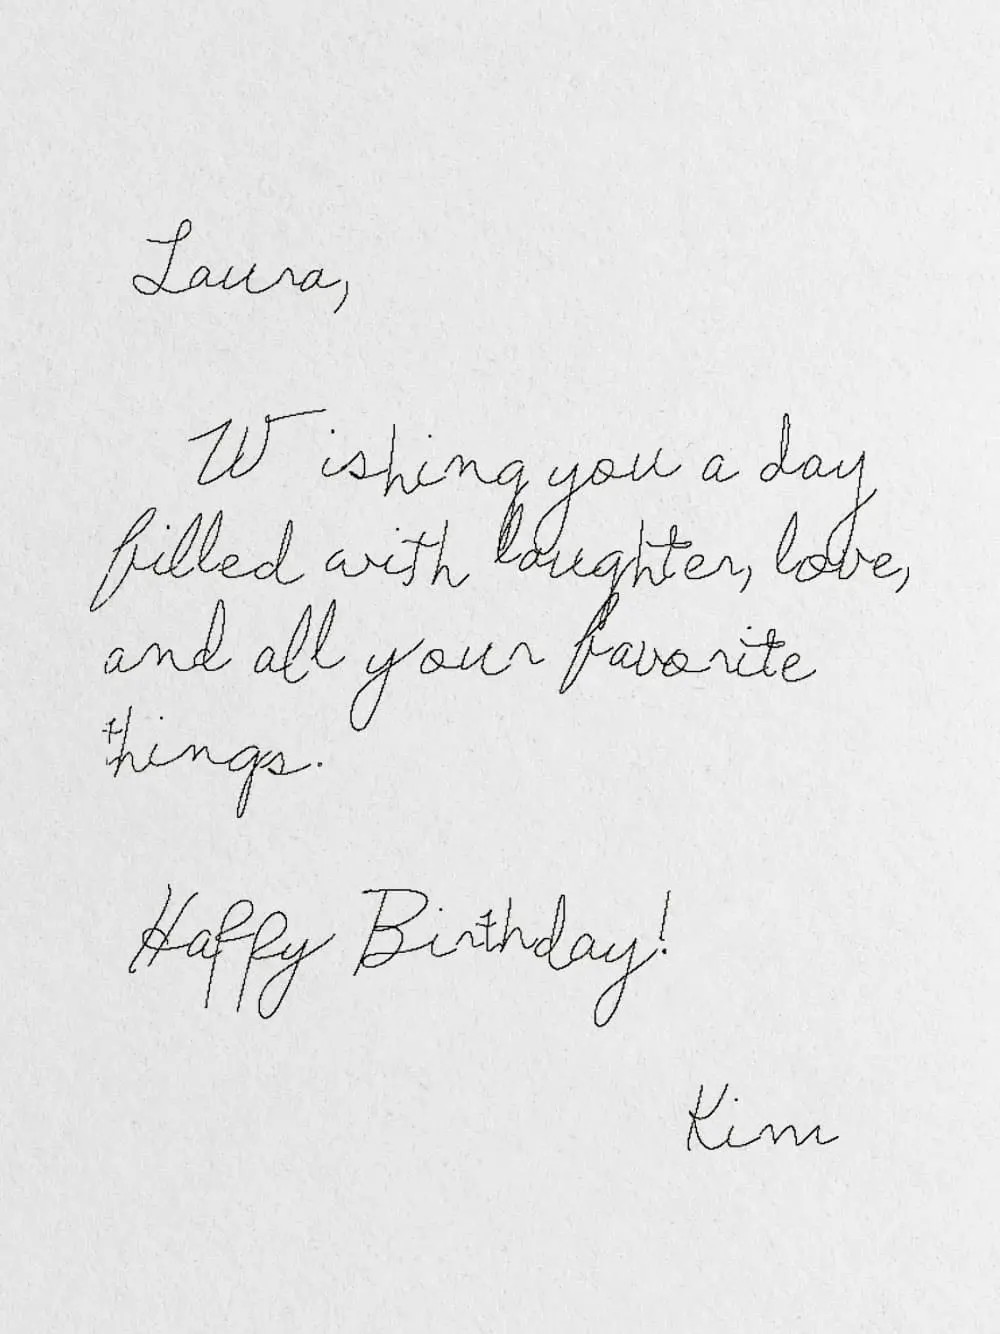 Laura,
Wishing you a day
filled with laughter, love,
and all your favorite
things.
Happy Birthday!
Kim